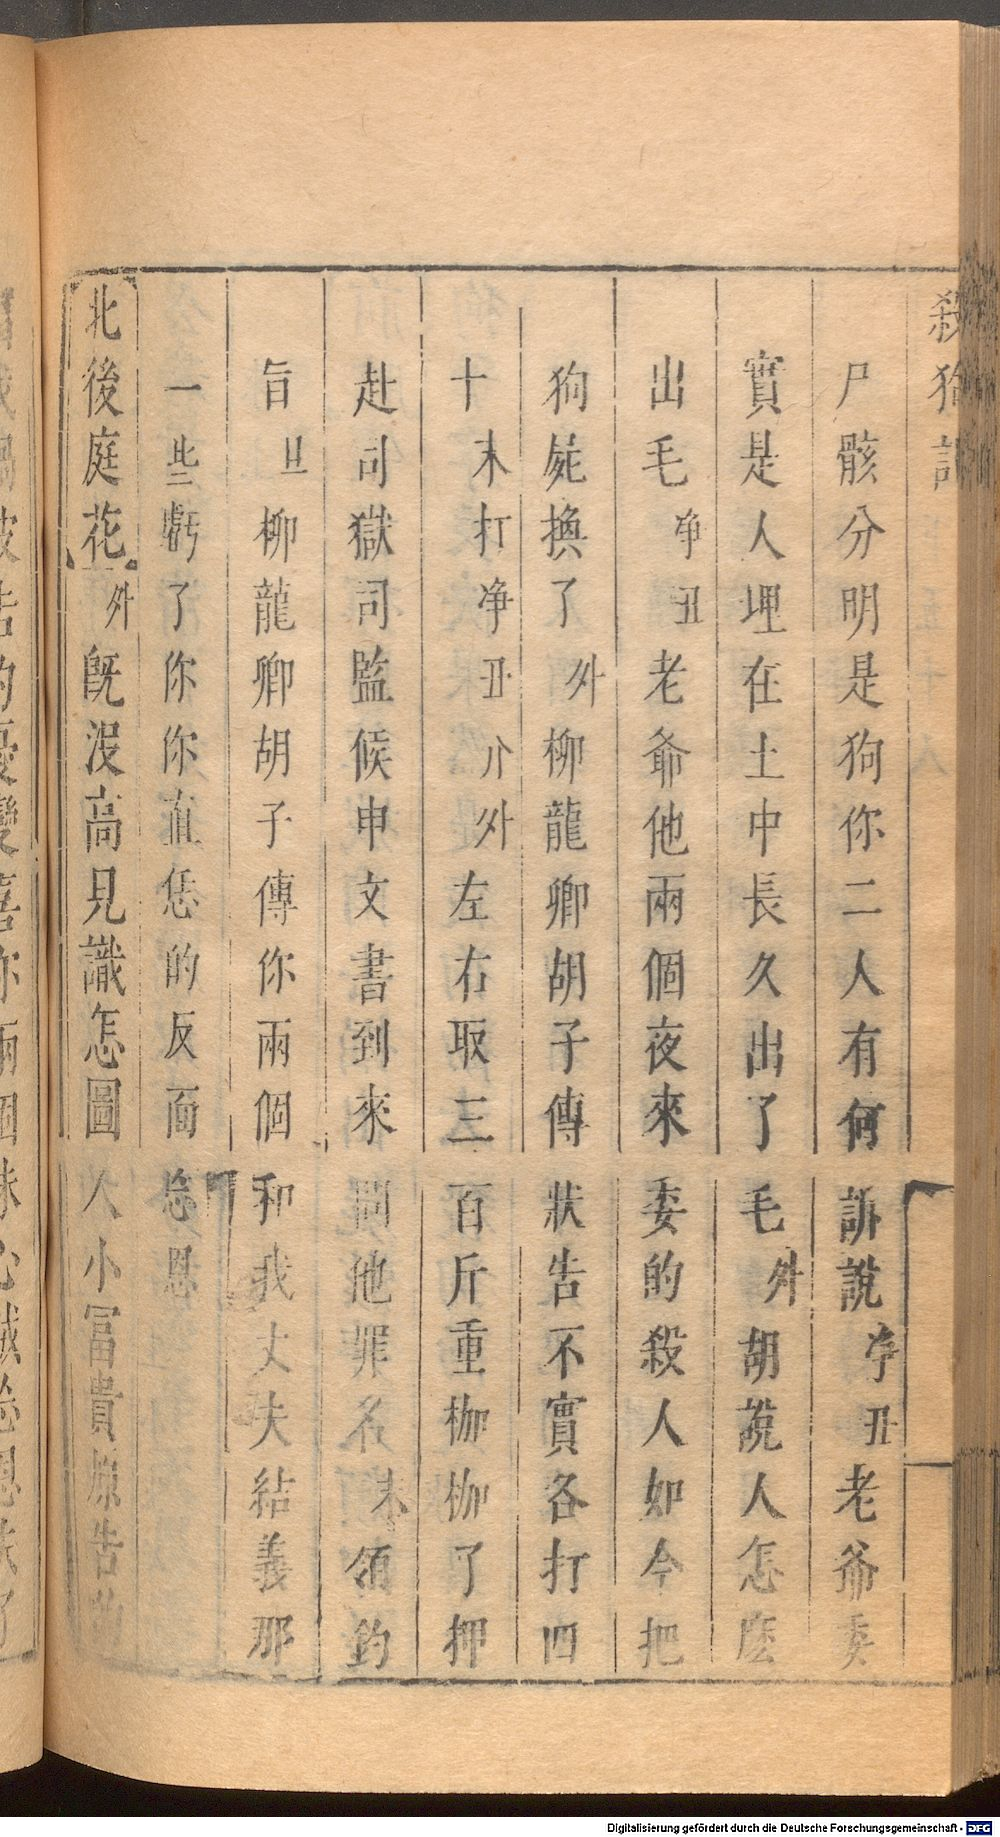 殺狗記
尸骸分明是狗你二人有何訴說淨丑老爺委
實是人埋在土中長久出了毛外胡說人怎麽
出毛淨丑老爺他兩個夜來委的殺人如今把
狗屍換了外柳龍卿胡子傳狀告不實各打四
十末打淨丑介外左右取三百斤重枷枷了押
赴司獄司監候申文書到來問他罪名末領鈞
旨旦柳龍卿胡子傳你兩個和我丈夫結義那
一些虧了你你直恁的反面忘恩
北後庭花外既沒高見識怎圖人小冨貴原告的
Digitalisierung gefördert durch die Deutsche Forschungsgemeinschaft - DFG